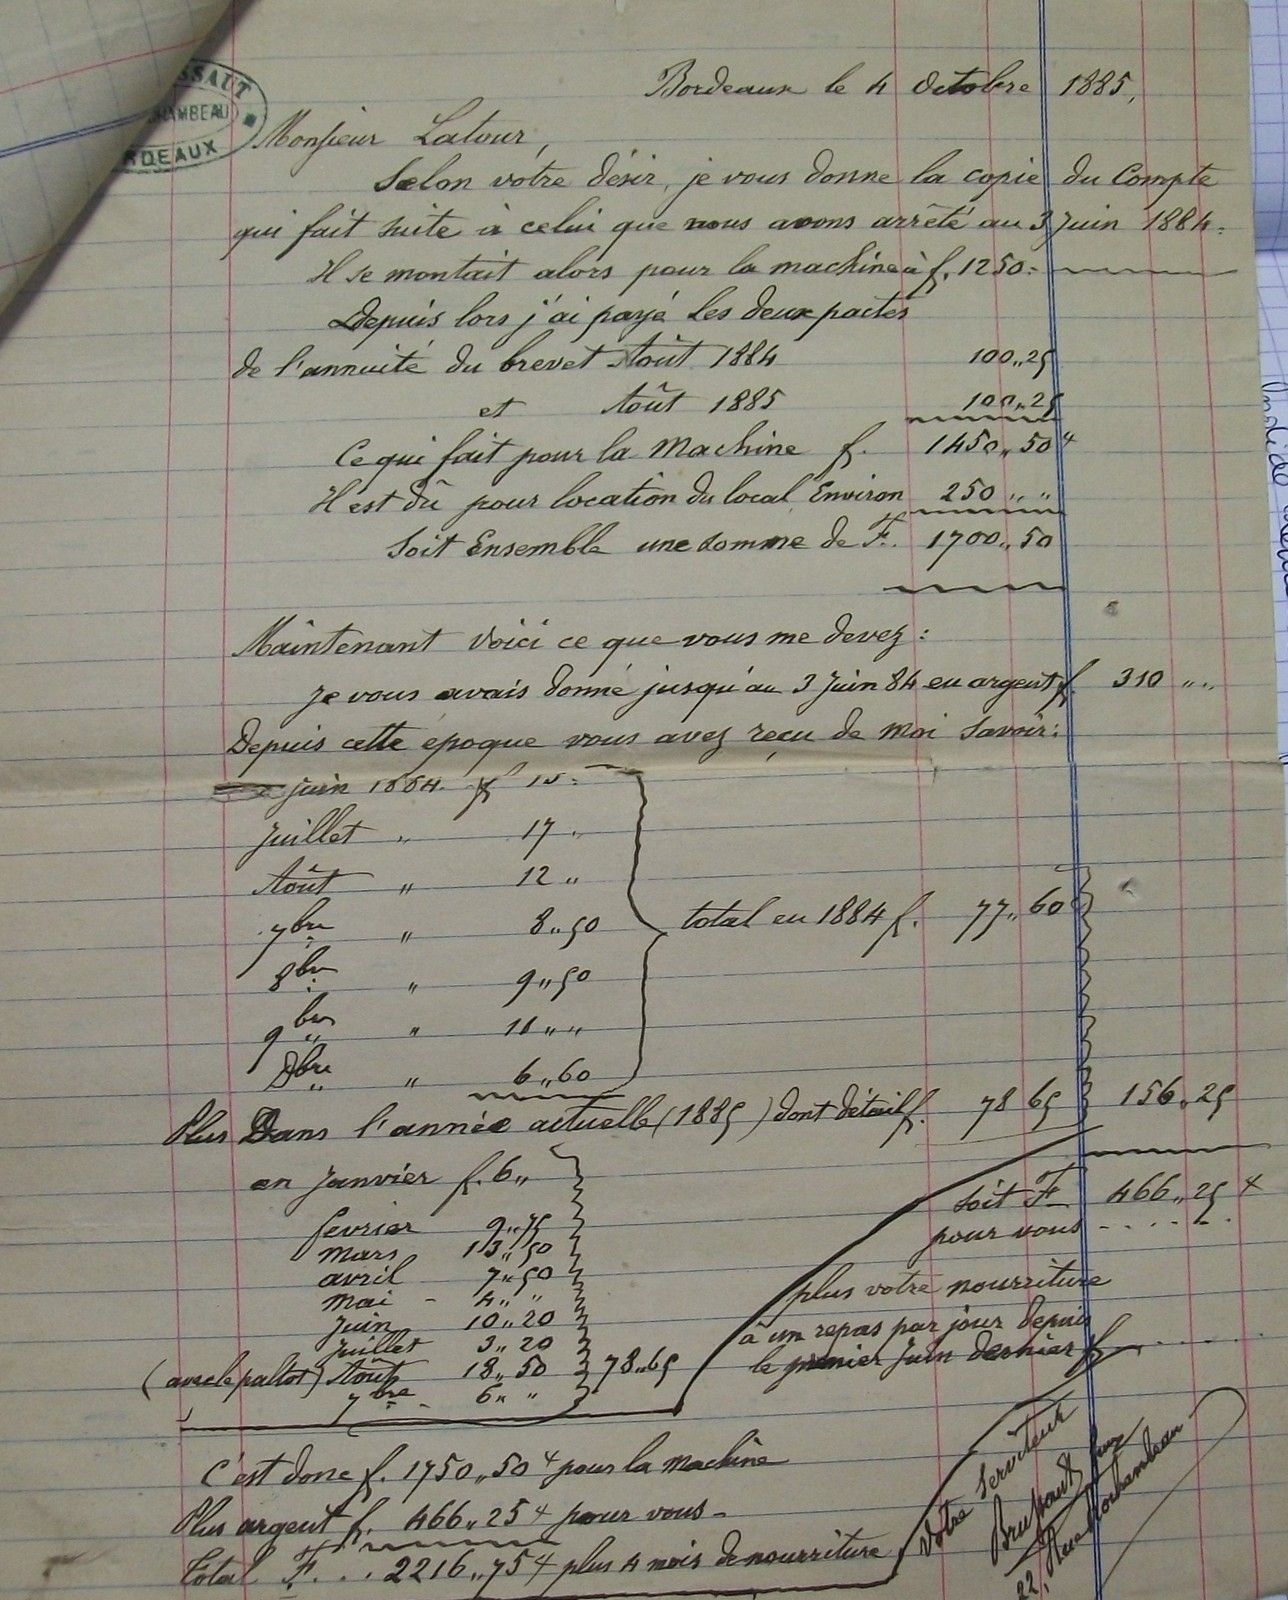 SSAUT
HAMBEAU
RDEAUX
Bordeaux le 4 Octobre 1885,
Monsieur Latour,
Selon votre désir, je vous donne la copie du Compte
qui fait suite à celui que nous avons arrêté au 3 Juin 1884.
Il se montait alors pour la machine à f. 1250.
Depuis lors j'ai payé les deux pactes
de l'annuité du brevet Août 1884 100,,25
et Août 1885 100,,25
Ce qui fait pour la Machine f. 1450,,50
Il est dû pour location du local, Environ 250 ,, ,,
Soit Ensemble une somme de F. 1700,,50
Maintenant voici ce que vous me devez :
Je vous avais donné jusqu'au 3 Juin 84 en argent f 310 ,, ,,
Depuis cette époque vous avez reçu de moi Savoir :
juin 1884. f 15
Juillet ,, 17 ,,
Août ,, 12 ,,
7bre ,, 8,,50
8bre ,, 9,,50
9bre ,, 11 ,, ,,
Dbre ,, 6,,60
total en 1884 f. 77,,60
Plus Dans l'année actuelle (1885) dont détail f. 78 65 156,,25
en Janvier f. 6,,
fevrier 9,,75
mars 13,,50
avril 7,,50
mai - 4,, ,,
Juin 10,,20
Juillet 3,,20
(avec le paltot) Août 18,,50 78,,65
7bre - 6,, ,,
Soit F. 466,,25
pour vous
plus votre nourriture
à un repas par jour depuis
le premier Juin dernier f
C'est donc f. 1750,,50 pour la machine
Plus argent f. 466,,25 pour vous -
Total F. . . 2216,,75 plus 4 mois de nourriture
Votre Serviteur
22, Rue Rochambeau